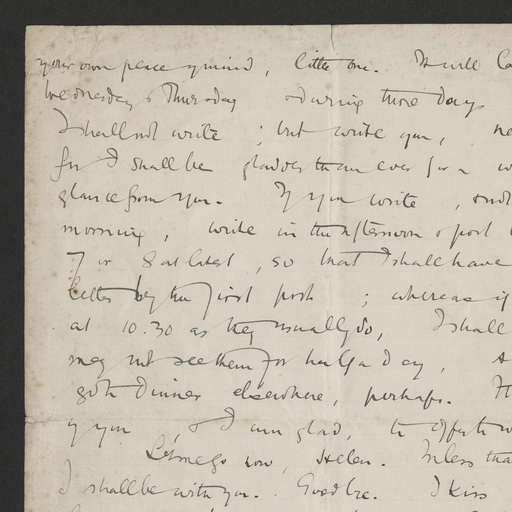 your own peace of mind, little one. It will
Wednesday & Thursday & during those days
I shall not write; but write you,
for I shall be gladder than ever for a
glance from you. If you write,
morning, write in the afternoon & post
7 or 8 at latest, so that I shall have
letter by the first post; whereas if
at 10.30 as they usually do, I shall
may not see them for half a day,
go to dinner elsewhere, perhaps.
of you & I am glad, to
Let me go now, Helen. In less than
I shall be with you. Goodbye. I kiss